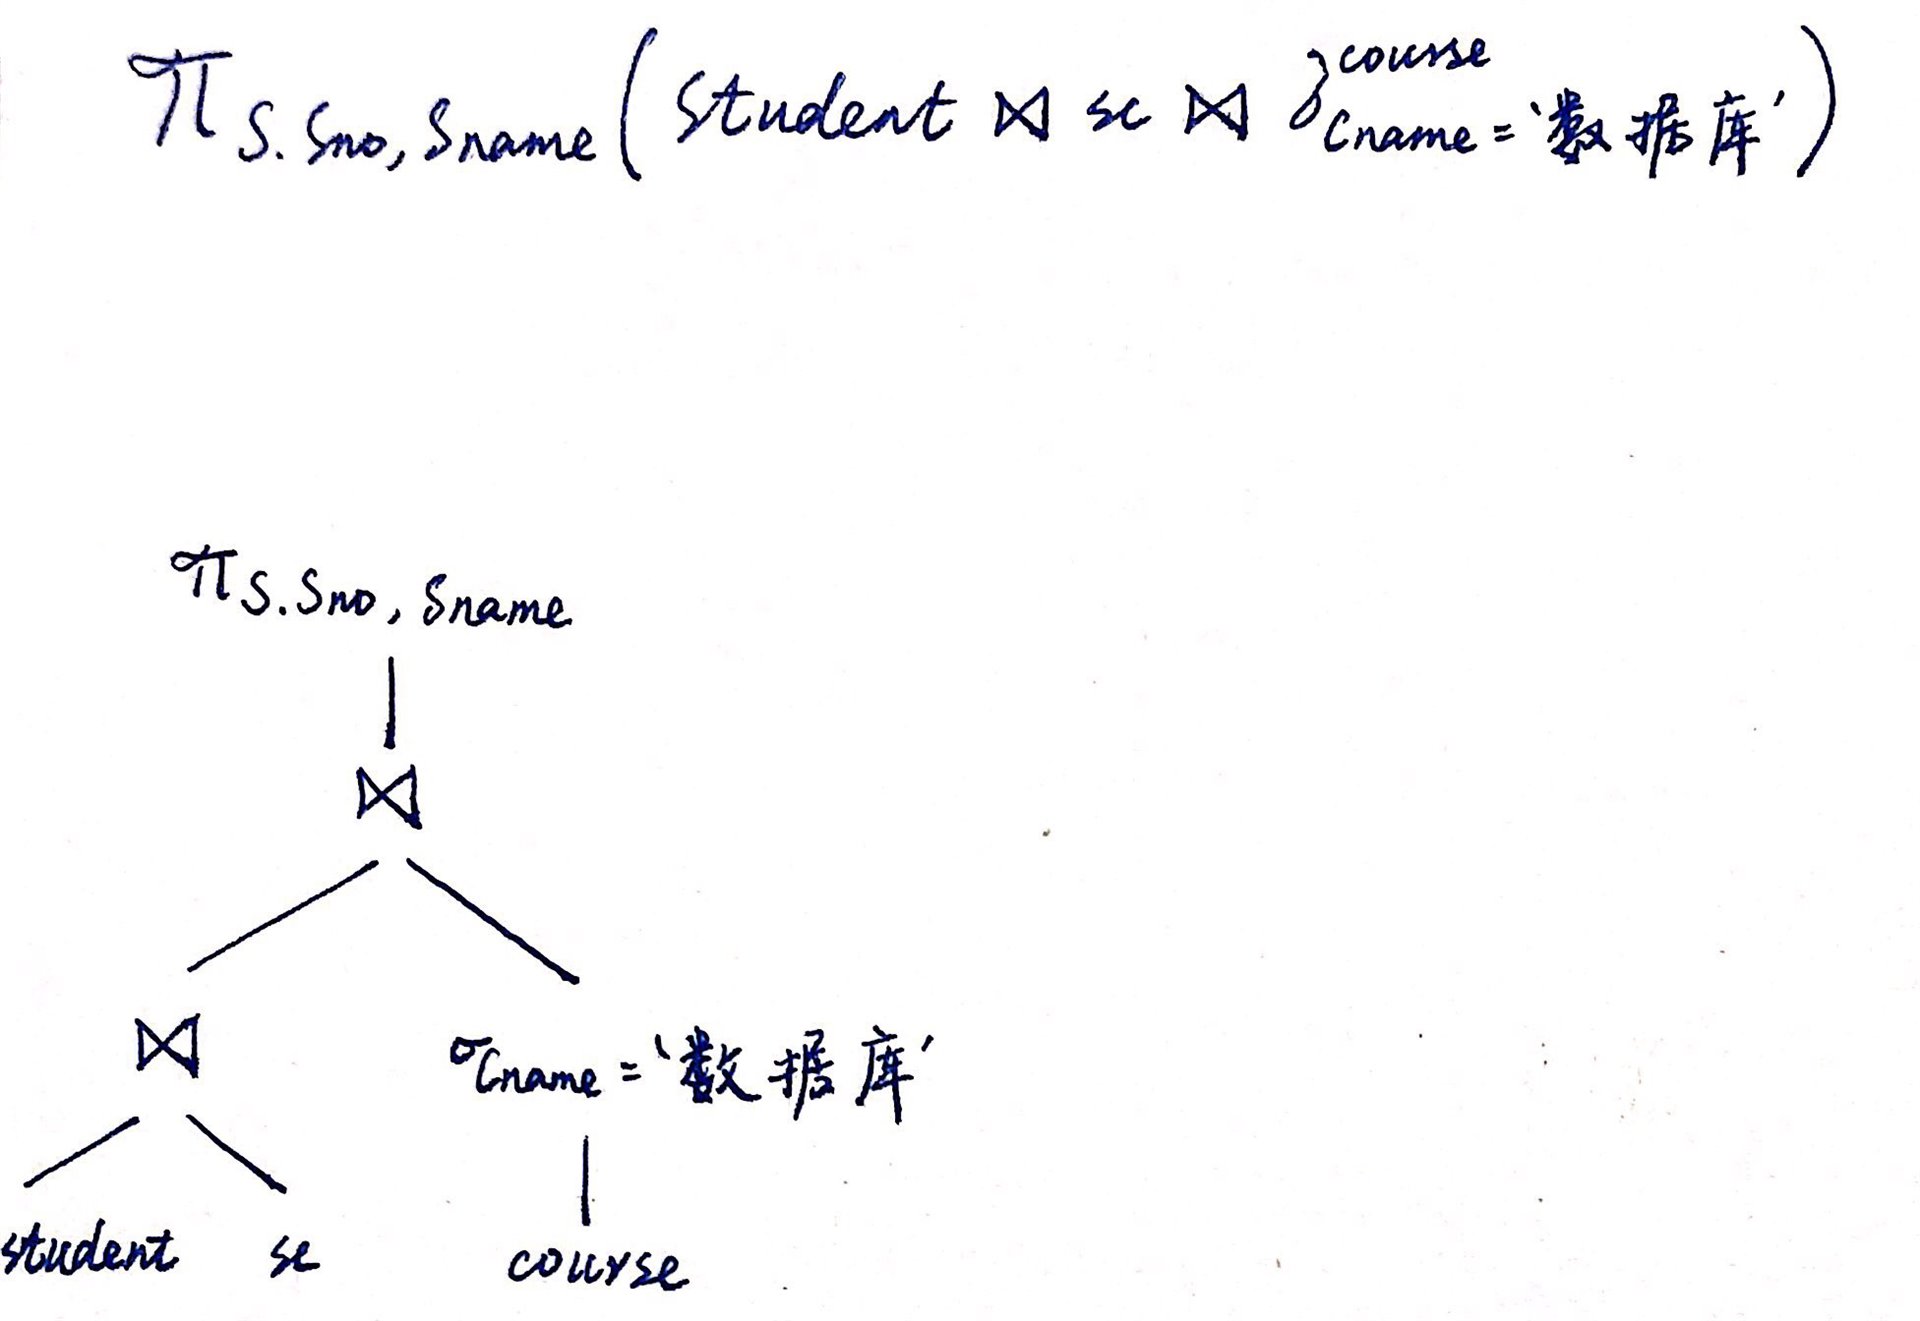 π S.Sno, Sname (Student ⋈ sc ⋈ σ Cname = '数据库' course)
π S.Sno, Sname
⋈
⋈ σ Cname = '数据库'
student sc course